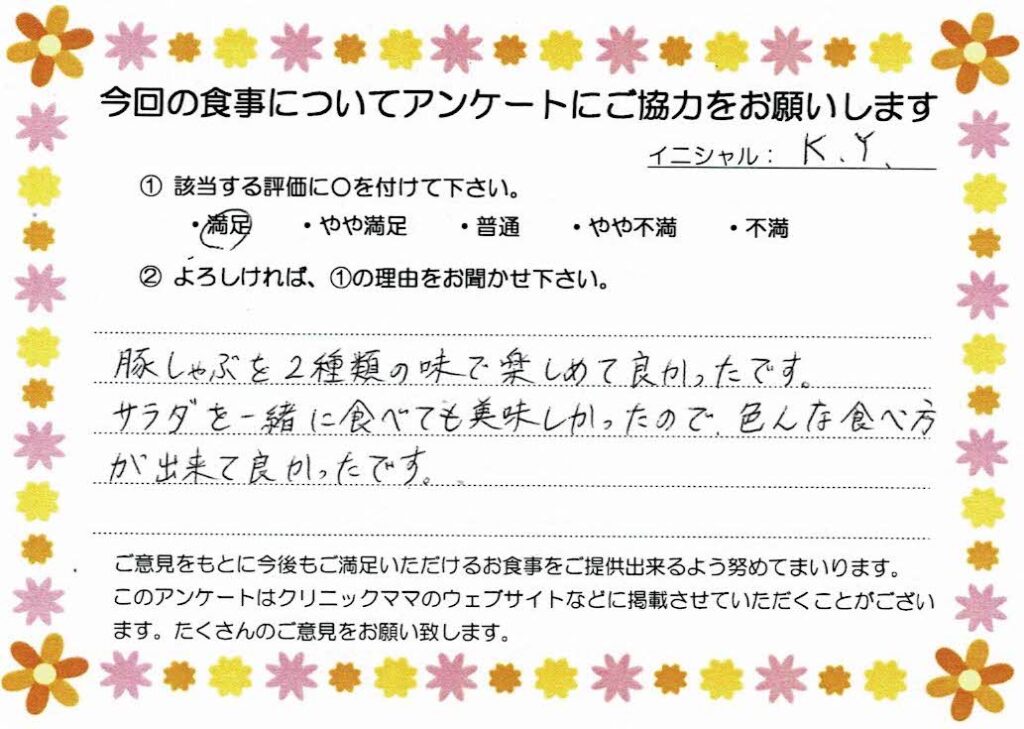 今回の食事についてアンケートにご協力をお願いします
イニシャル： K、Y、
① 該当する評価に〇を付けて下さい。
・満足　・やや満足　・普通　・やや不満　・不満
② よろしければ、①の理由をお聞かせ下さい。
豚しゃぶを2種類の味で楽しめて良かったです。
サラダを一緒に食べても美味しかったので、色んな食べ方
が出来て良かったです。
ご意見をもとに今後もご満足いただけるお食事をご提供出来るよう努めてまいります。
このアンケートはクリニックママのウェブサイトなどに掲載させていただくことがござい
ます。たくさんのご意見をお願い致します。